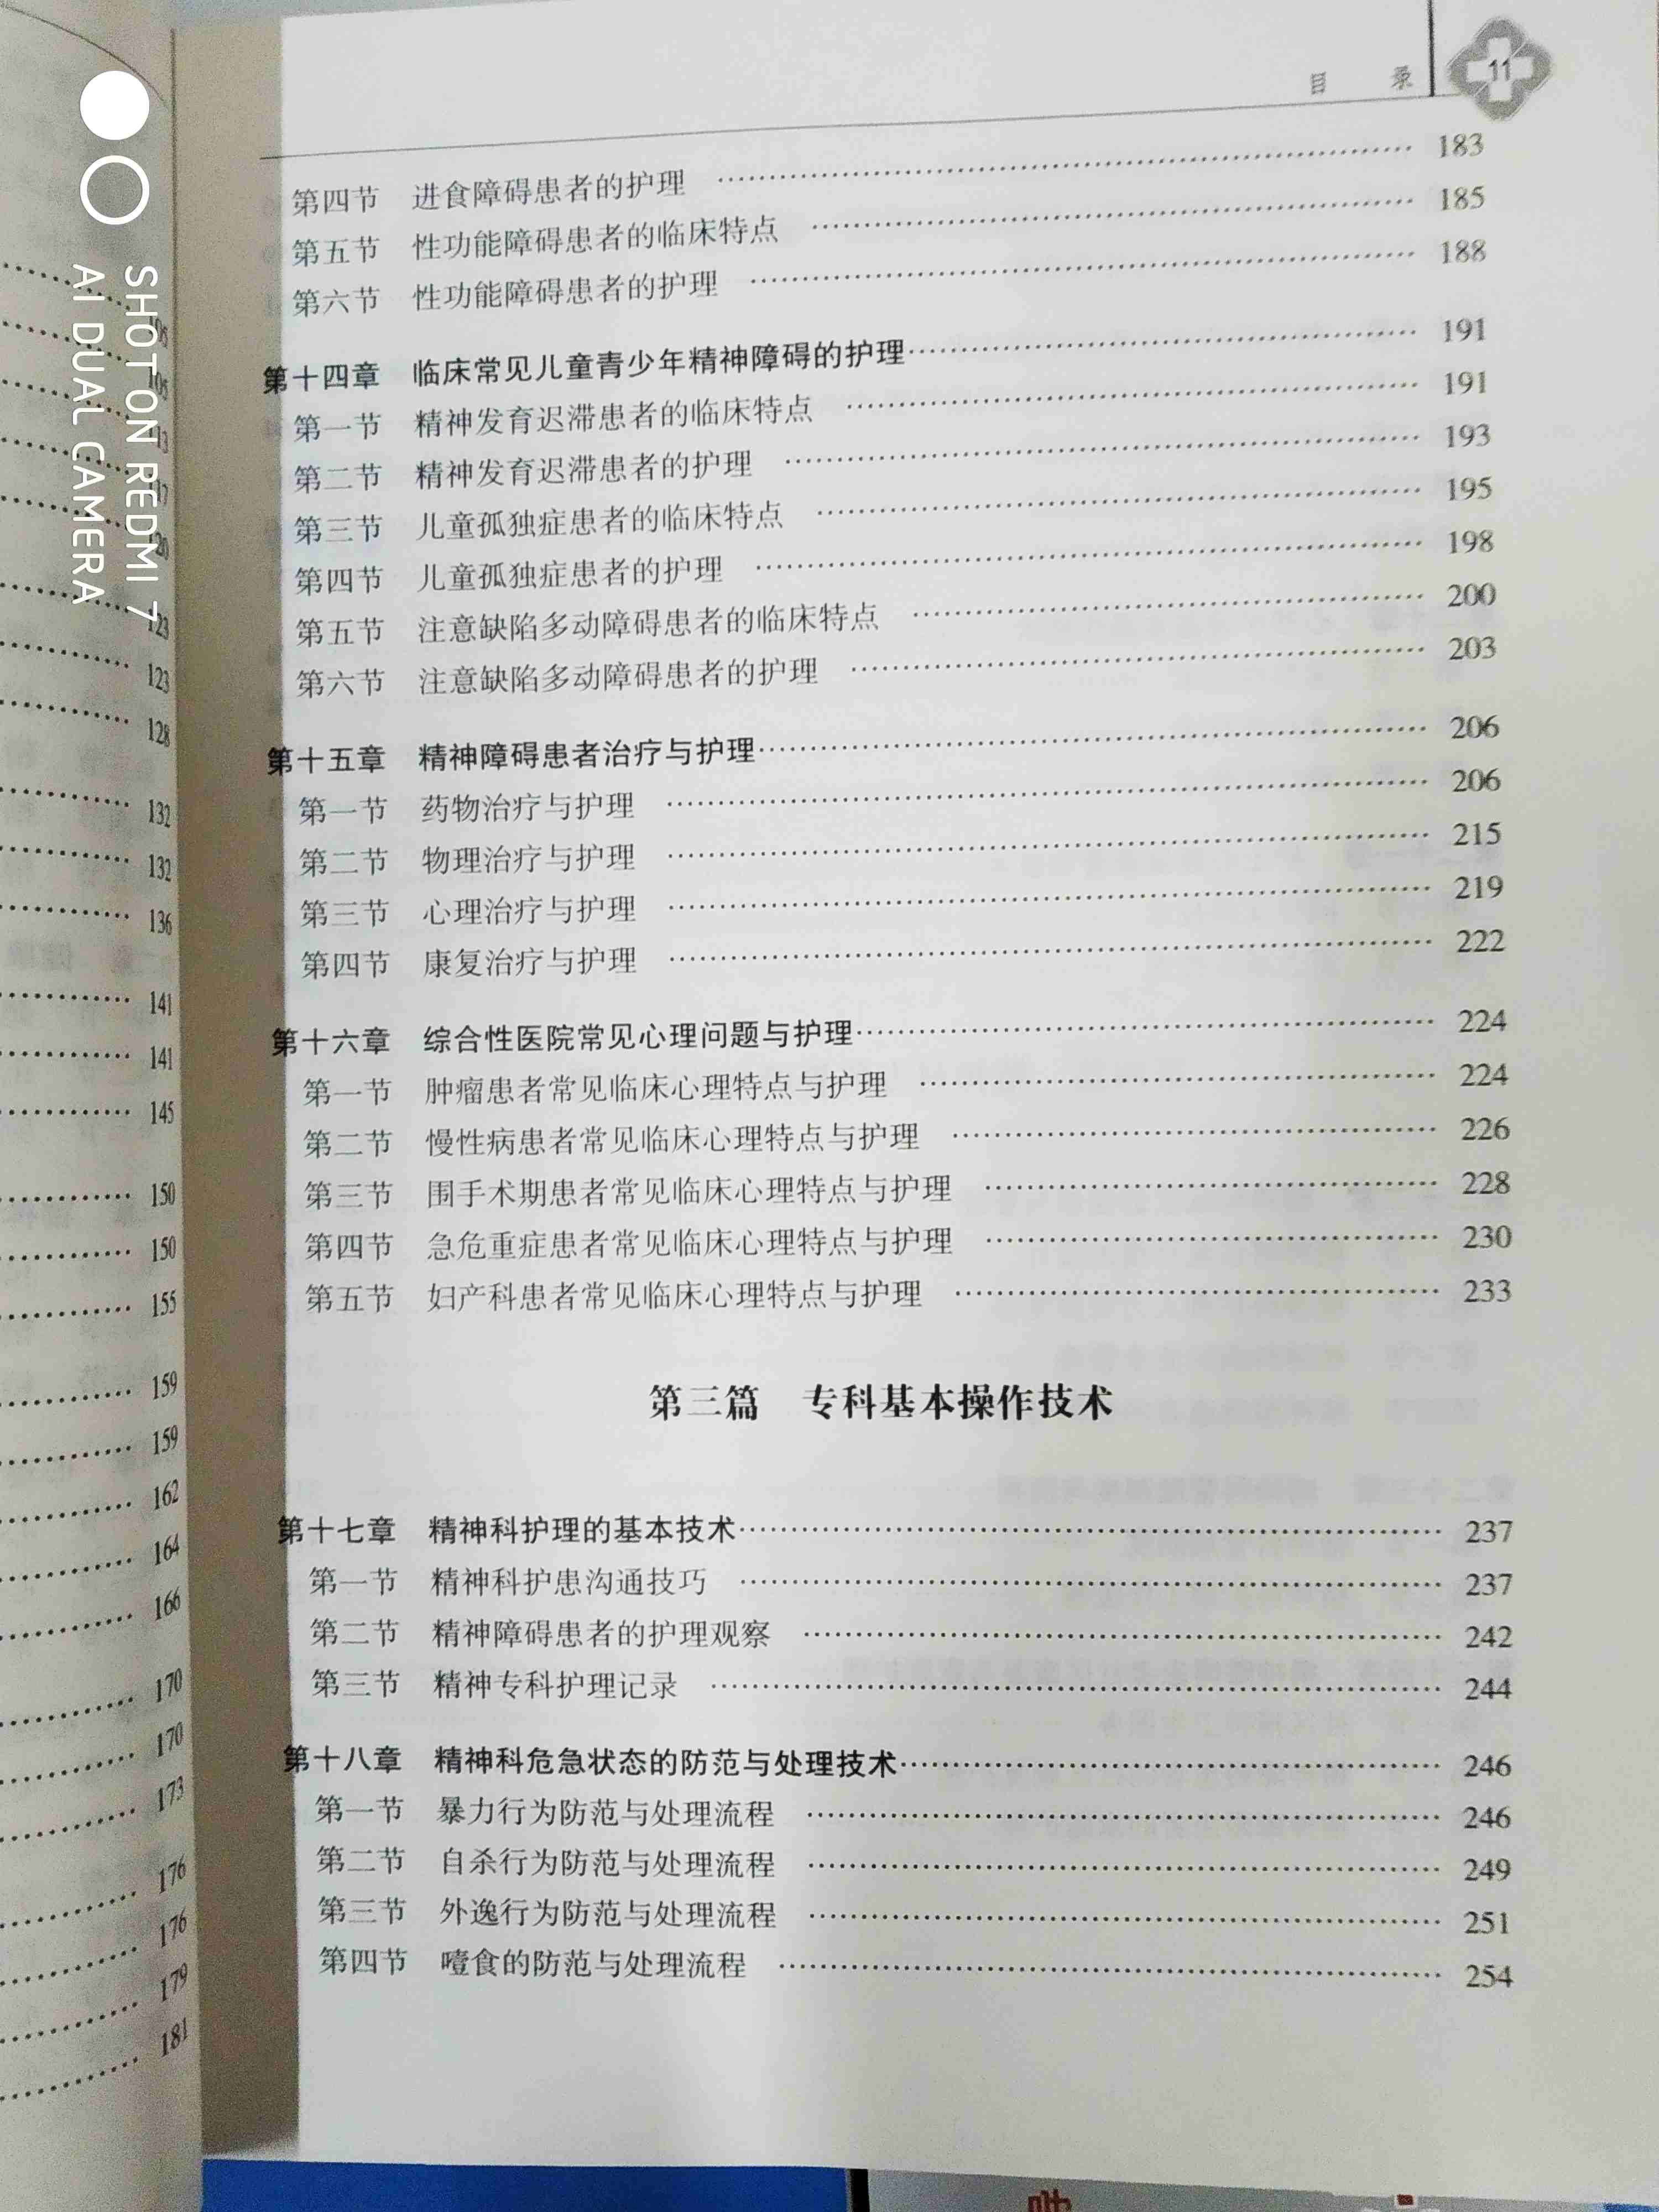 目 录 11
第四节 进食障碍患者的护理 …… 183
第五节 性功能障碍患者的临床特点 …… 185
第六节 性功能障碍患者的护理 …… 188
第十四章 临床常见儿童青少年精神障碍的护理 …… 191
第一节 精神发育迟滞患者的临床特点 …… 191
第二节 精神发育迟滞患者的护理 …… 193
第三节 儿童孤独症患者的临床特点 …… 195
第四节 儿童孤独症患者的护理 …… 198
第五节 注意缺陷多动障碍患者的临床特点 …… 200
第六节 注意缺陷多动障碍患者的护理 …… 203
第十五章 精神障碍患者治疗与护理 …… 206
第一节 药物治疗与护理 …… 206
第二节 物理治疗与护理 …… 215
第三节 心理治疗与护理 …… 219
第四节 康复治疗与护理 …… 222
第十六章 综合性医院常见心理问题与护理 …… 224
第一节 肿瘤患者常见临床心理特点与护理 …… 224
第二节 慢性病患者常见临床心理特点与护理 …… 226
第三节 围手术期患者常见临床心理特点与护理 …… 228
第四节 急危重症患者常见临床心理特点与护理 …… 230
第五节 妇产科患者常见临床心理特点与护理 …… 233
第三篇 专科基本操作技术
第十七章 精神科护理的基本技术 …… 237
第一节 精神科护患沟通技巧 …… 237
第二节 精神障碍患者的护理观察 …… 242
第三节 精神专科护理记录 …… 244
第十八章 精神科危急状态的防范与处理技术 …… 246
第一节 暴力行为防范与处理流程 …… 246
第二节 自杀行为防范与处理流程 …… 249
第三节 外逸行为防范与处理流程 …… 251
第四节 噎食的防范与处理流程 …… 254
SHOT ON REDMI 7
AI DUAL CAMERA
123
123
128
132
132
136
141
141
145
150
150
155
159
159
162
164
166
170
170
173
176
176
179
181